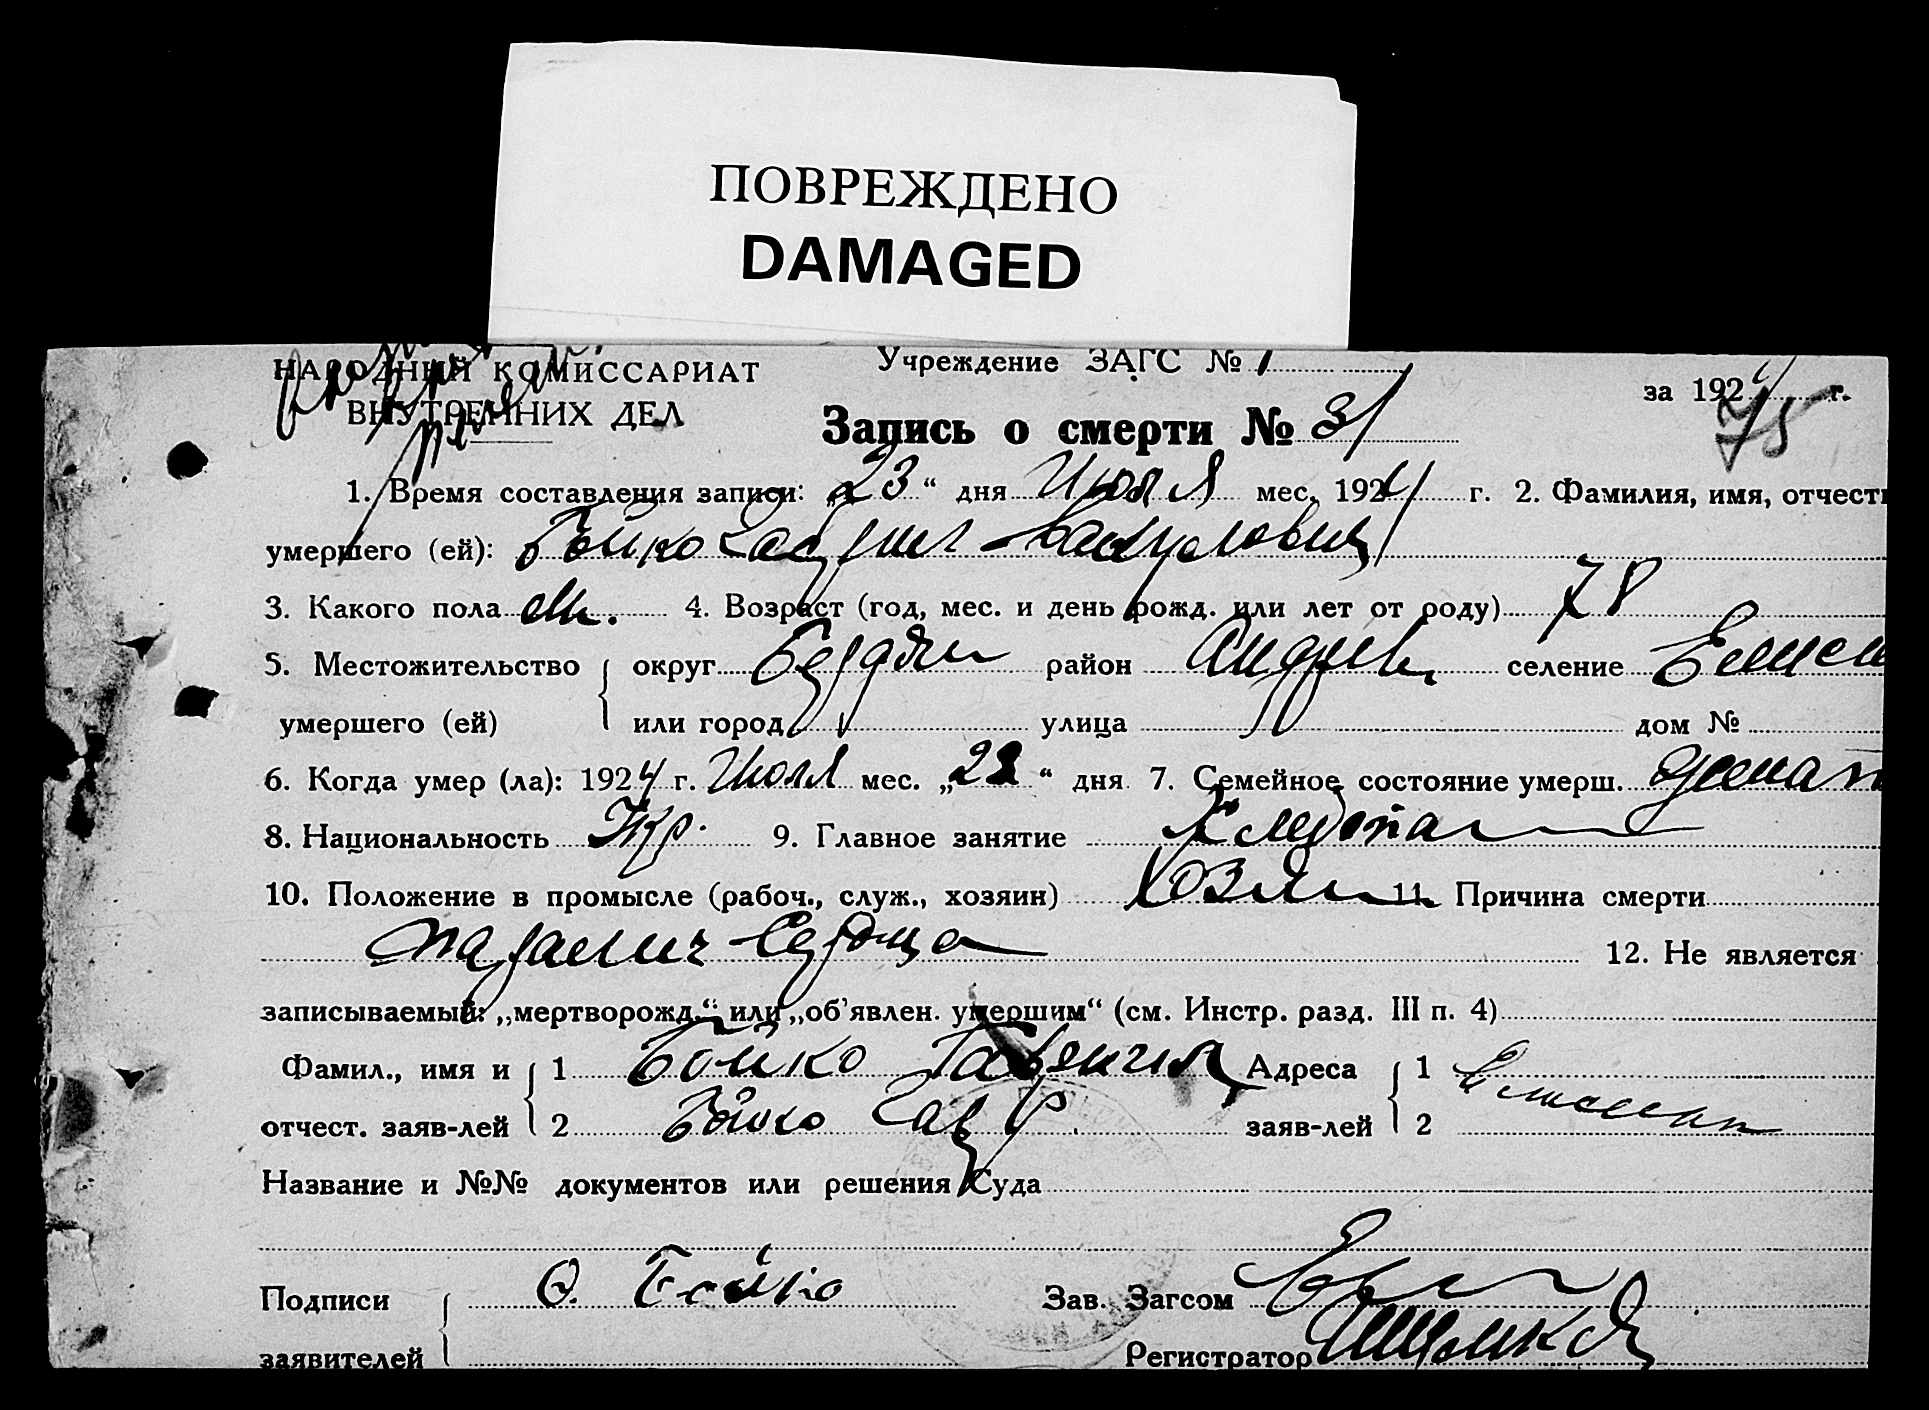 ПОВРЕЖДЕНО
DAMAGED
НАРОДНЫЙ КОМИССАРИАТ
ВНУТРЕННИХ ДЕЛ
Учреждение ЗАГС № 1
за 1924 г.
75
Запись о смерти № 31
1. Время составления записи: „23“ дня Июля мес. 1924 г. 2. Фамилия, имя, отчест
умершего (ей): Бойко
3. Какого пола м. 4. Возраст (год, мес. и день рожд. или лет от роду) 78
5. Местожительство округ Бердян район Андреев селение
умершего (ей) или город улица дом №
6. Когда умер (ла): 1924 г. Июля мес. „22“ дня 7. Семейное состояние умерш. женат
8. Национальность Укр. 9. Главное занятие Хлебопаш
10. Положение в промысле (рабоч., служ., хозяин) Хозяин 11. Причина смерти
паралич сердца 12. Не является
записываемый: „мертворожд.“ или „об'явлен. умершим“ (см. Инстр. разд. III п. 4)
Фамил., имя и 1 Бойко Адреса 1
отчест. заяв-лей 2 Бойко заяв-лей 2
Название и №№ документов или решения Суда
Подписи Бойко Зав. Загсом
заявителей Регистратор